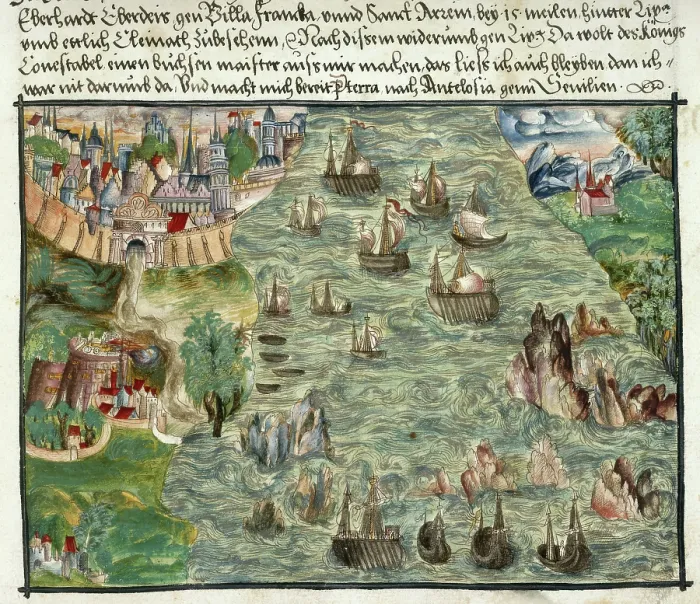 Eberhardt Eberders gen Villa Franca, vnnd Sanct Arrem, bey 15 meilen, hintter Lix:ᵃ
vmb ettlich Cleinath zubesehenn, Nach dissem widerumb gen Lix:ᵃ Da wolt des Königs
Conestabel einen büchsen maister auss mir machen, das liess ich auch bleyben dan ich
war nit darumb da, Vnd macht mich bereit P terra, nach Antelosia genn Sevilien.